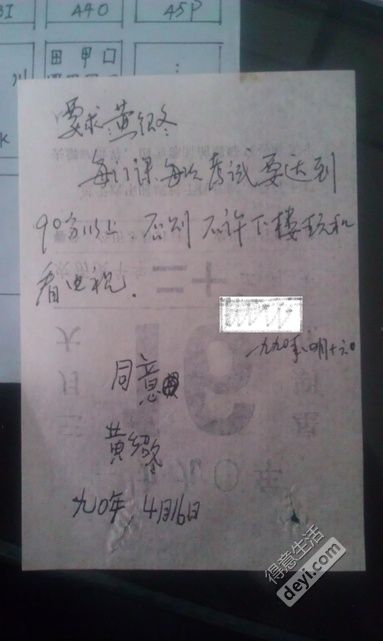 BI
A40
45P
田 甲 口
...
要求黄绍冬
每门课每次考试要达到
90分以上 否则不许下楼玩和
看电视.
一九九0年四月十六日
同意
黄绍冬
九0年 4月16日
得意生活
deyi.com